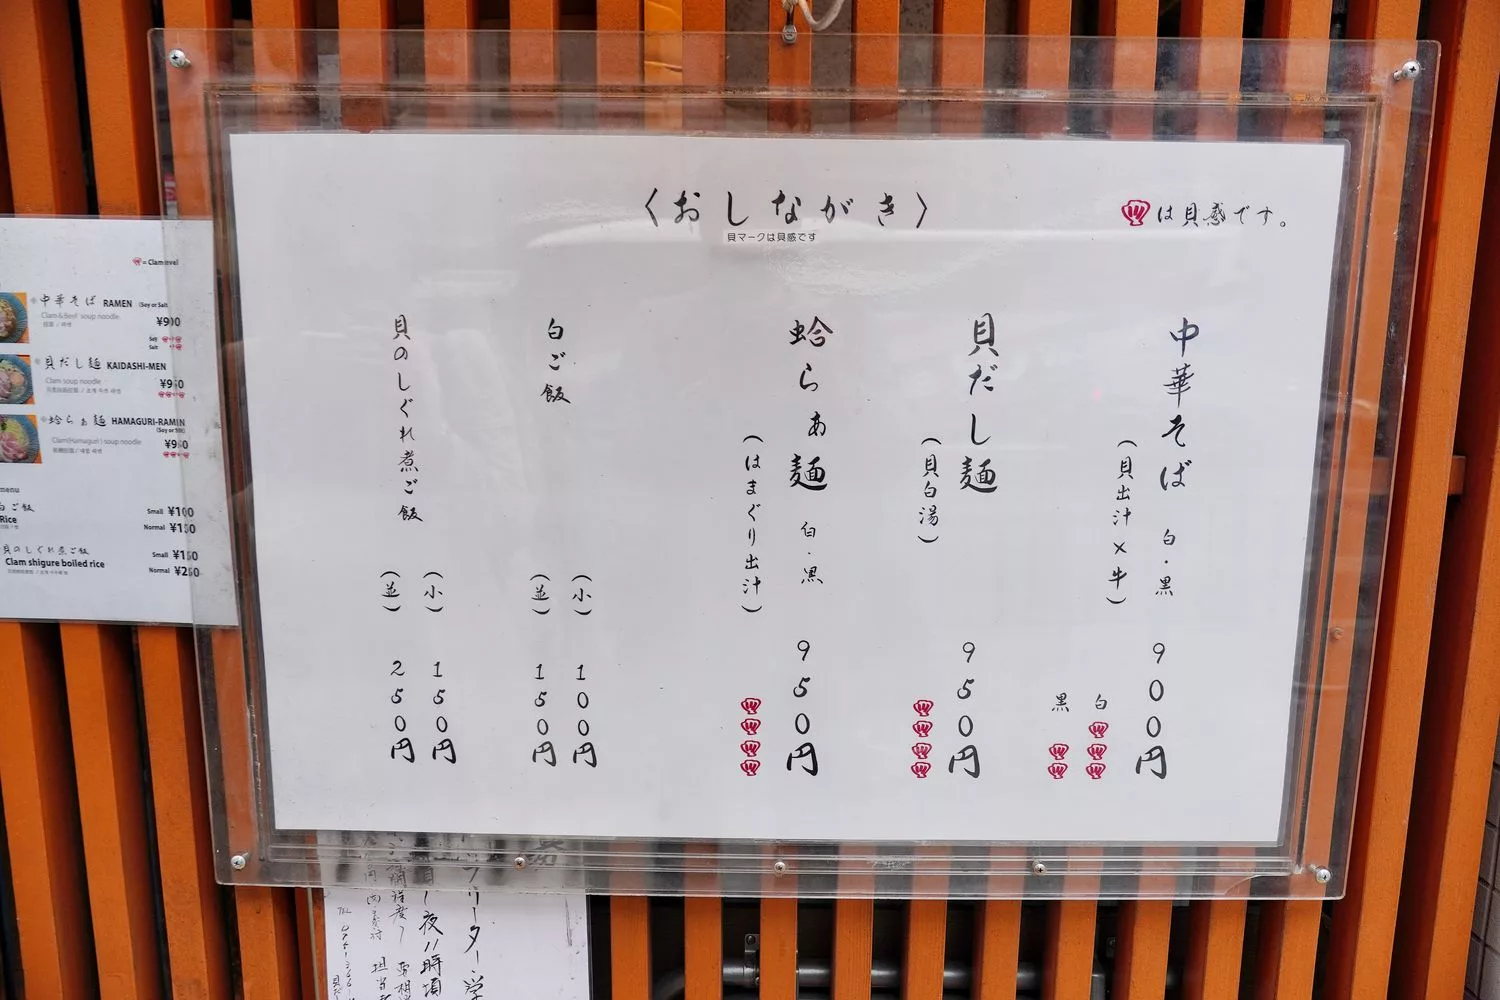 〈おしながき〉
貝マークは貝感です
は貝感です。
中華そば 白・黒 900円
(貝出汁×牛)
白
黒
貝だし麺 950円
(貝白湯)
蛤らぁ麺 白・黒 950円
(はまぐり出汁)
白ご飯 (小) 100円
(並) 150円
貝のしぐれ煮ご飯 (小) 150円
(並) 250円
= Clam level
中華そば RAMEN (Soy or Salt
Clam&Beef soup noodle
¥900
Soy
Salt
貝だし麺 KAIDASHI-MEN
Clam soup noodle
¥950
蛤らぁ麺 HAMAGURI-RAMEN
(Soy or Salt)
Clam(Hamaguri) soup noodle
¥950
menu
白ご飯
Rice
Small ¥100
Normal ¥150
貝のしぐれ煮ご飯
Clam shigure boiled rice
Small ¥150
Normal ¥250
フリーター
夜11時頃